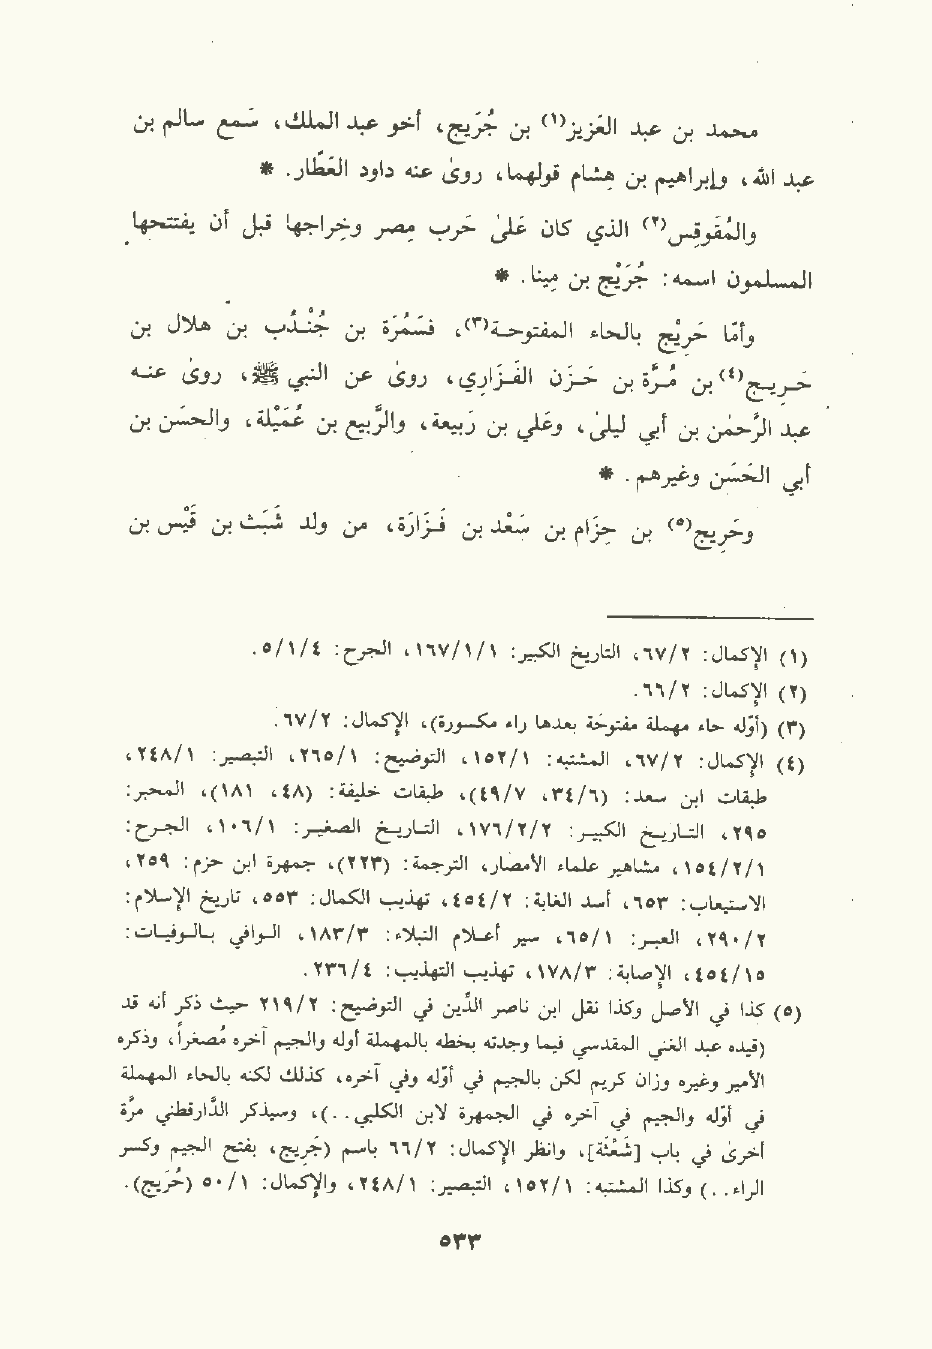 محمد بن عبد العَزِيز(١) بن جُرَيج، أخو عبد الملك، سَمع سالم بن
عبد الله، وإبراهيم بن هِشام قولهما، روىٰ عنه داود العَطّار. *
والمُقَوقِس(٢) الذي كان عَلىٰ حَرب مِصر وخِراجها قبل أن يفتتحها
المسلمون اسمه: جُرَيْج بن مِينا. *
وأمّا حَرِيْج بالحاء المفتوحة(٣)، فسَمُرَة بن جُنْدُب بن هلال بن
حَرِيج(٤) بن مُرّة بن حَزن الفَزارِي، روىٰ عن النبي ﷺ، روىٰ عنه
عبد الرَّحمٰن بن أبي ليلىٰ، وعَلي بن رَبيعة، والرَّبيع بن عُمَيْلة، والحسَن بن
أبي الحَسَن وغيرهم. *
وحَرِيج(٥) بن حِزام بن سَعْد بن فَزارَة، من ولد شَبَث بن قَيْس بن
(١) الإكمال: ٦٧/٢، التاريخ الكبير: ١٦٧/١/١، الجرح: ٥/١/٤.
(٢) الإكمال: ٦٦/٢.
(٣) (أوّله حاء مهملة مفتوحَة بعدها راء مكسورة)، الإكمال: ٦٧/٢.
(٤) الإكمال: ٦٧/٢، المشتبه: ١٥٢/١، التوضيح: ٢٦٥/١، التبصير: ٢٤٨/١،
طبقات ابن سعد: (٣٤/٦، ٤٩/٧)، طبقات خليفة: (٤٨، ١٨١)، المحبر:
٢٩٥، التاريخ الكبير: ١٧٦/٢/٢، التاريخ الصغير: ١٠٦/١، الجرح:
١٥٤/٢/١، مشاهير علماء الأمصار، الترجمة: (٢٢٣)، جمهرة ابن حزم: ٢٥٩،
الاستيعاب: ٦٥٣، أسد الغابة: ٤٥٤/٢، تهذيب الكمال: ٥٥٣، تاريخ الإسلام:
٢٩٠/٢، العبر: ٦٥/١، سير أعلام النبلاء: ١٨٣/٣، الوافي بالوفيات:
٤٥٤/١٥، الإصابة: ١٧٨/٣، تهذيب التهذيب: ٢٣٦/٤.
(٥) كذا في الأصل وكذا نقل ابن ناصر الدّين في التوضيح: ٢١٩/٢ حيث ذكر أنه قد
(قيده عبد الغني المقدسي فيما وجدته بخطه بالمهملة أوله والجيم آخره مُصغراً، وذكره
الأمير وغيره وزان كريم لكن بالجيم في أوّله وفي آخره، كذلك لكنه بالحاء المهملة
في أوله والجيم في آخره في الجمهرة لابن الكلبي..)، وسيذكر الدّارقطني مرّة
أخرىٰ في باب [شَعْثَة]، وانظر الإكمال: ٦٦/٢ باسم (جَرِيج، بفتح الجيم وكسر
الراء..) وكذا المشتبه: ١٥٢/١، التبصير: ٢٤٨/١، والإكمال: ٥٠/١ (حُرَيج).
٥٣٣